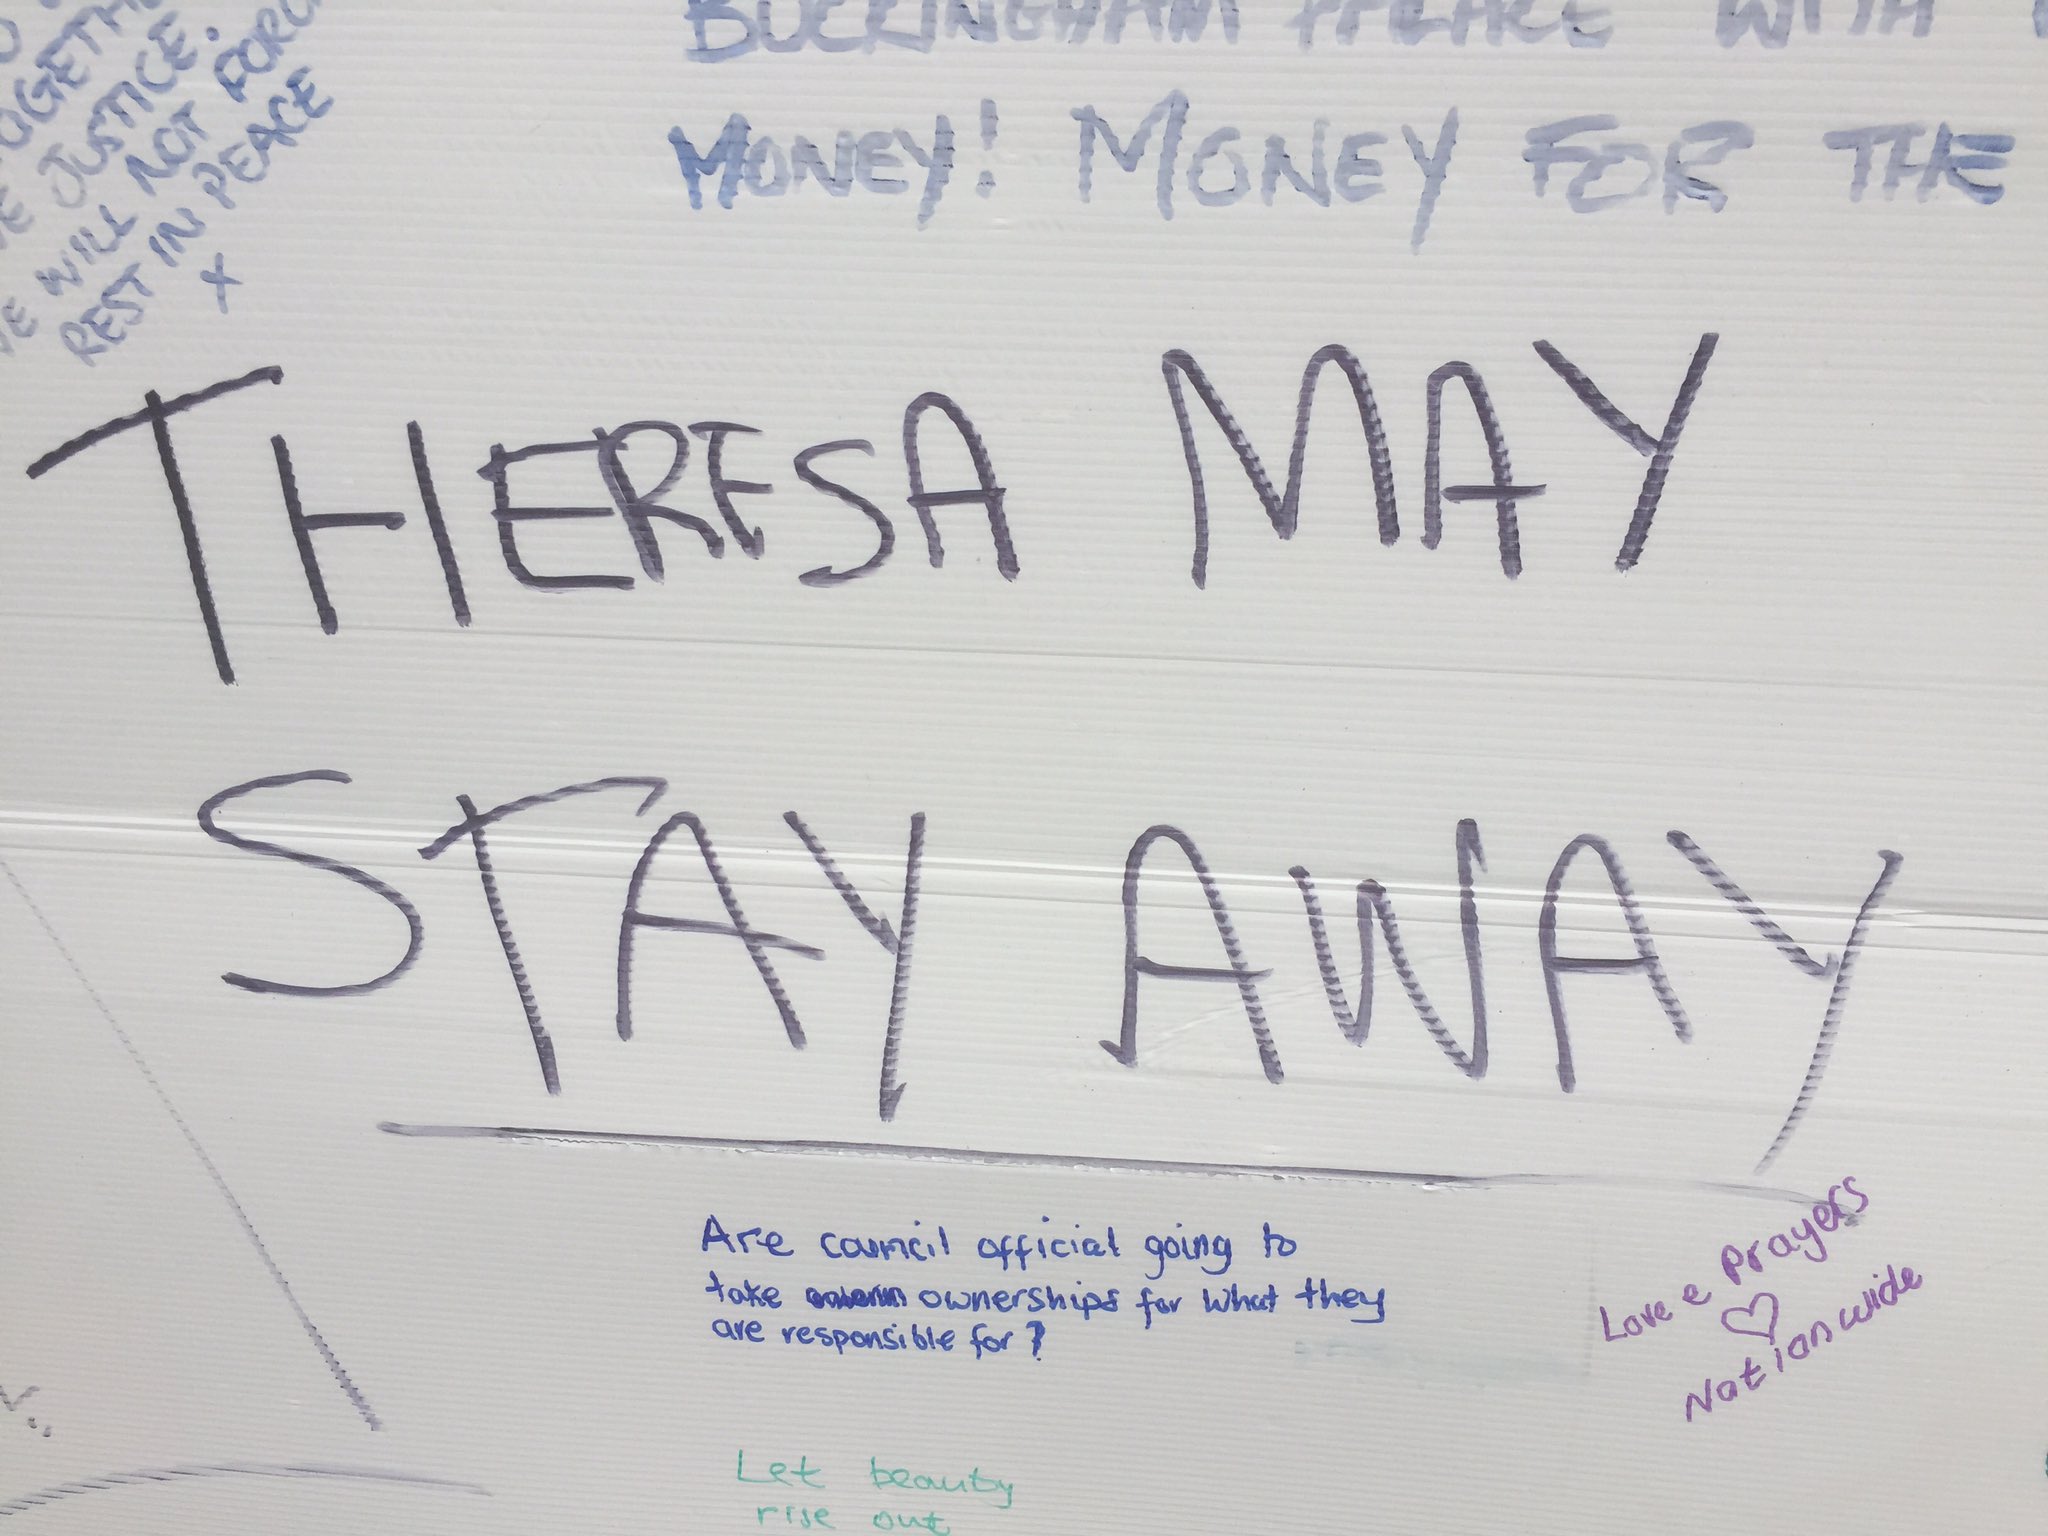 BUCKINGHAM PALACE WITH
MONEY! MONEY FOR THE
JUSTICE.
WILL NOT
REST IN PEACE
X
THERESA MAY
STAY AWAY
Are council official going to
take ownerships for what they
are responsible for?
Love e prayers
Nationwide
Let beauty
rise out